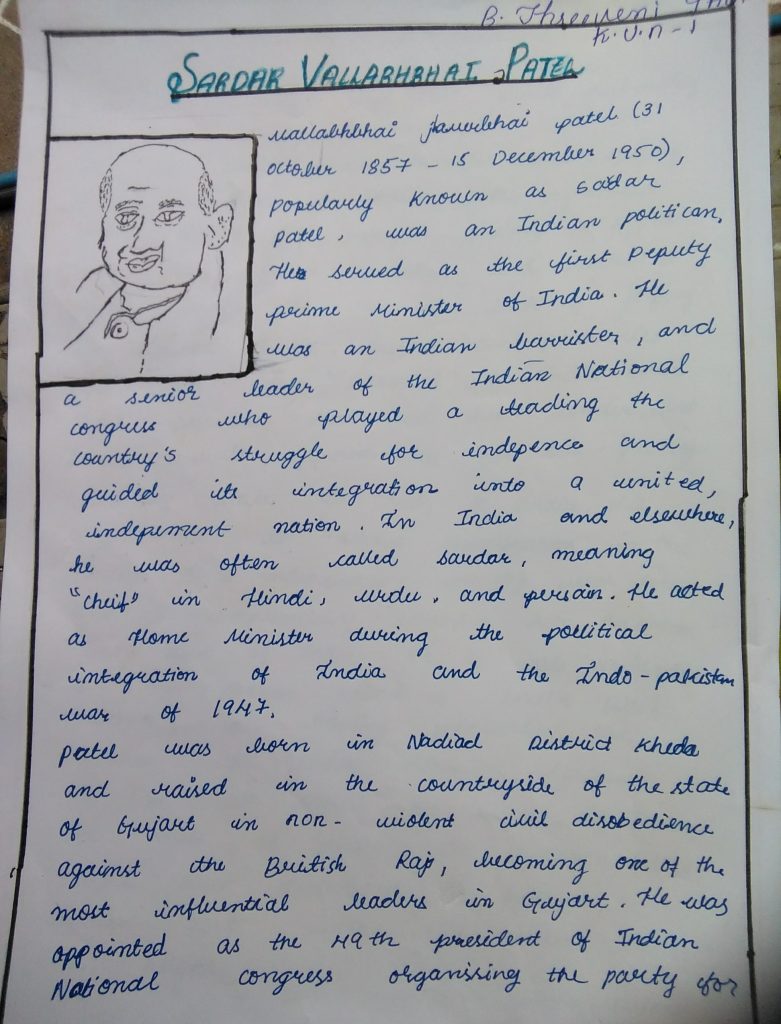 B. Threeveni
K.V.n-1
SARDAR VALLABHBHAI PATEL
Vallabhbhai Javerbhai patel (31
october 1857 - 15 December 1950),
popularly known as Sadar
patel, was an Indian politican.
He served as the first Deputy
prime Minister of India. He
was an Indian barrister, and
a senior leader of the Indian National
congress who played a leading the
country's struggle for indepence and
guided its integration into a united,
indepenment nation. In India and elsewhere,
he was often called sardar, meaning
"cheif" in Hindi, urdu, and persain. He acted
as Home Minister during the political
integration of India and the Indo-pakistan
war of 1947.
patel was born in Nadiad District Kheda
and raised in the countryside of the state
of Gujart in non-violent civil disobedience
against the British Raj, becoming one of the
most influential leaders in Gujart. He was
appointed as the 49th president of Indian
National congress organissing the party for